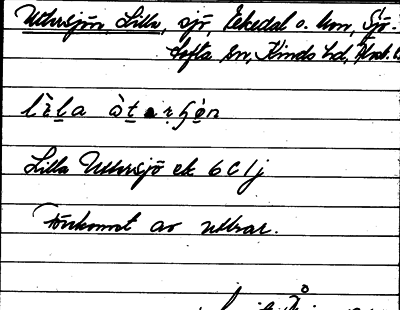 Uttersjön, Lilla, sjö, Ekedal o. hmn, Sjö-
tofta sn, Kinds hd,
lìla àtərʃø̀n
Lilla Uttersjö ek 6C1j
Förekomst av uttrar.